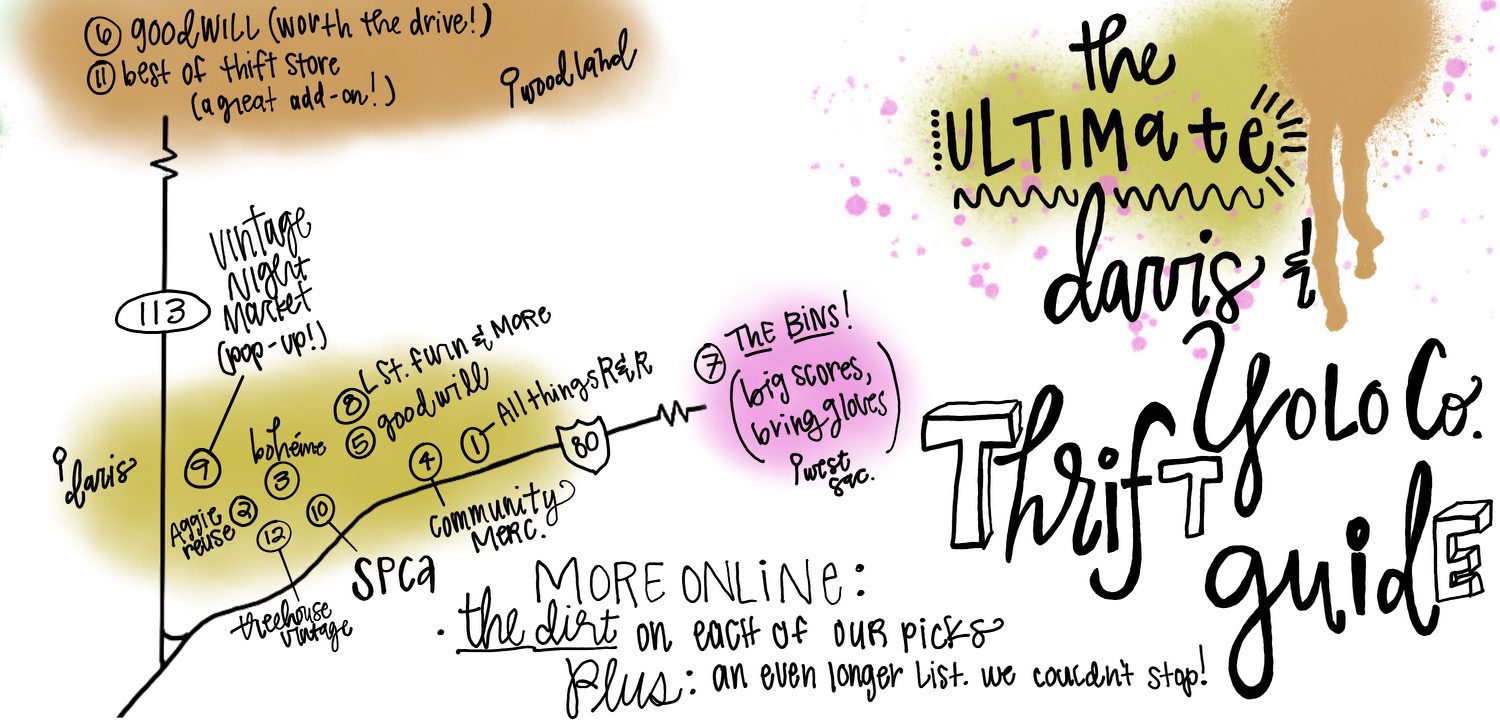 6 goodWILL (worth the drive!)
11 best of thift store
(a great add-on!)
woodland
113
Vintage
Night
Market
(pop-up!)
8 L St. furn & More
5 goodwill
1 All things R&R
bohéme
3
9
4
80
davis
Aggie
reuse
2
10
12
community
Merc.
SPCA
treehouse
vintage
7 THE BINS!
(big scores,
bring gloves)
west
sac.
MORE ONLINE:
· the dirt on each of our picks
Plus: an even longer list. we couldn't stop!
the
ULTIMate
davis &
Yolo Co.
Thrift
guide